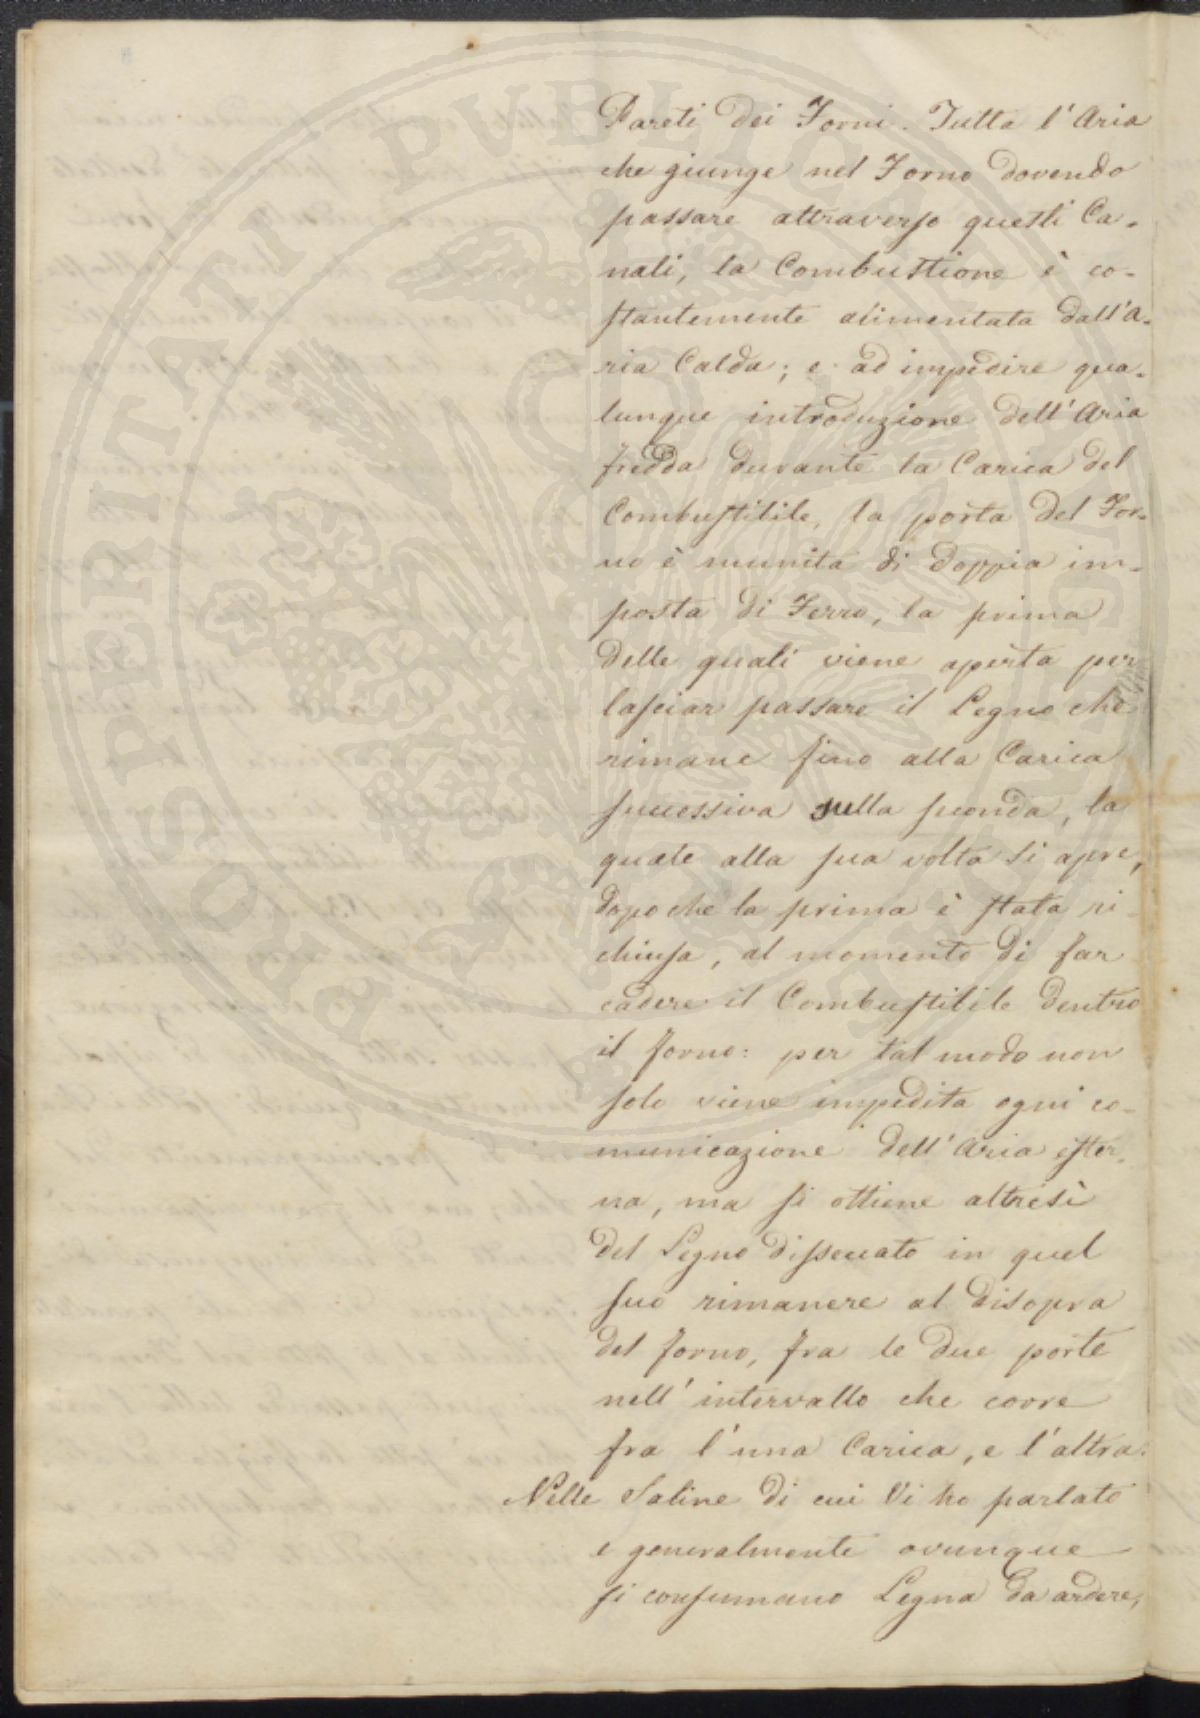 Pareti dei Forni. Tutta l'Aria
che giunge nel Forno dovendo
passare attraverso questi Ca-
nali, la Combustione è co-
stantemente alimentata dall'A-
ria Calda; e ad impedire qua-
lunque introduzione dell'Aria
fredda durante la Carica del
Combustibile, la porta del For-
no è munita di doppia im-
posta di Ferro, la prima
delle quali viene aperta per
lasciar passare il Legno che
rimane fino alla Carica
successiva sulla seconda, la
quale alla sua volta si apre,
dopo che la prima è stata ri-
chiusa, al momento di far
cadere il Combustibile dentro
il forno: per tal modo non
solo viene impedita ogni co-
municazione dell'Aria ester-
na, ma si ottiene altresì
del Legno dissecato in quel
suo rimanere al disopra
del forno, fra le due porte
nell'intervallo che corre
fra l'una Carica, e l'altra.
Nelle Saline di cui Vi ho parlato
e generalmente ovunque
si consumano Legna da ardere,
PROSPERITATI PUBLICAE